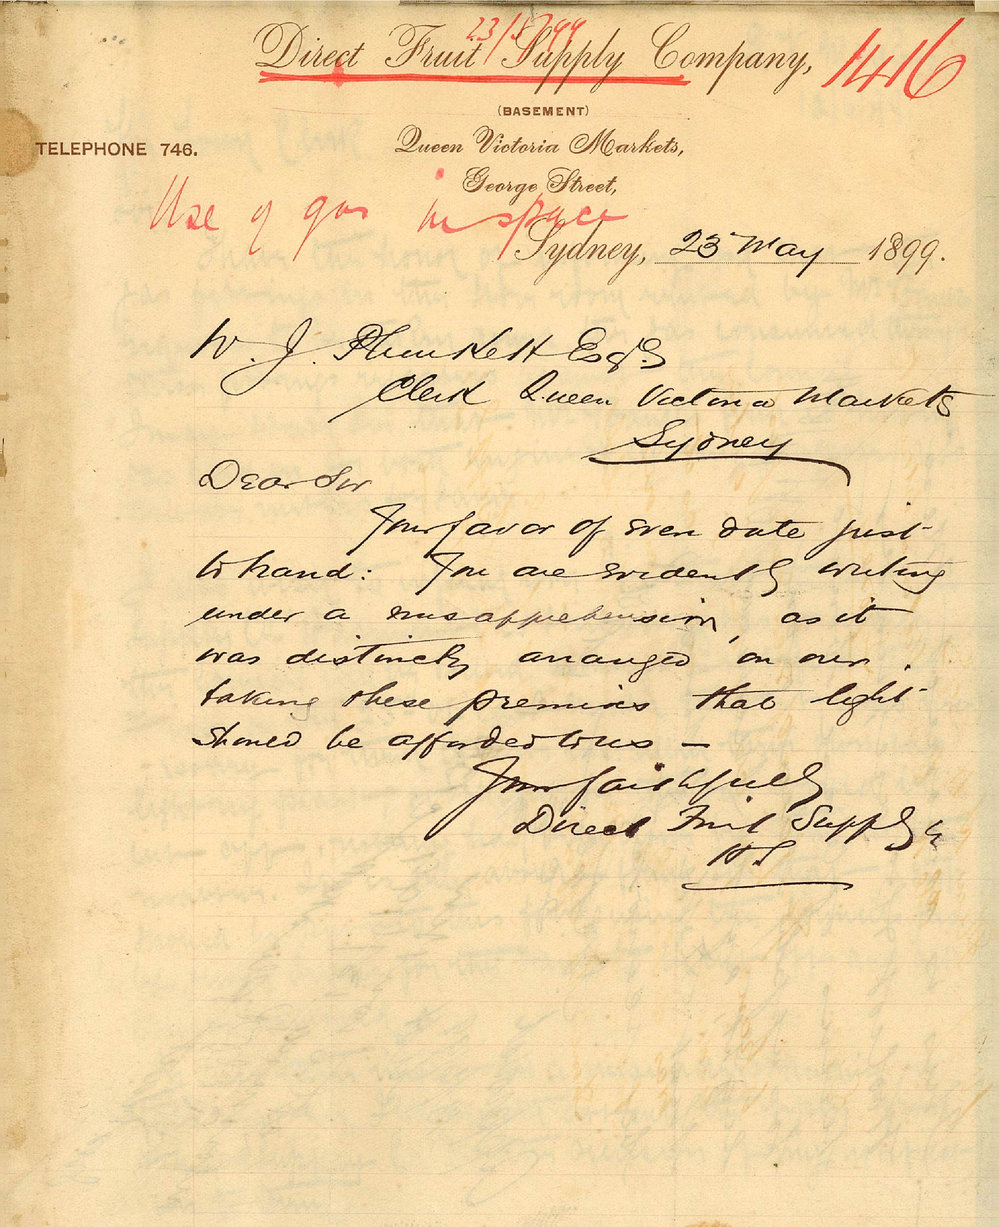 23/5/99
Direct Fruit Supply Company,
1416
(BASEMENT)
TELEPHONE 746.
Queen Victoria Markets,
George Street,
Use of gas in space
Sydney, 23 May 1899.
W. J. Plunkett Esq
Clerk Queen Victoria Markets
Sydney
Dear Sir
Your favor of even date just
to hand: You are evidently writing
under a misapprehension, as it
was distinctly arranged on our
taking these premises that light
should be afforded to us —
Yours faithfully
Direct Fruit Supply Co